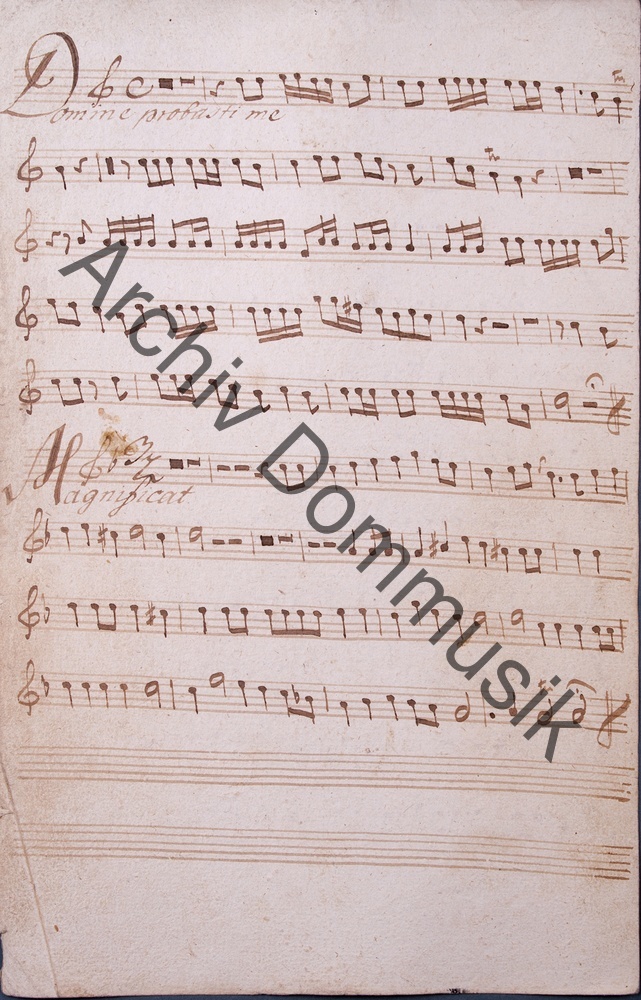 Domine probasti me
Magnificat
Archiv Dommusik